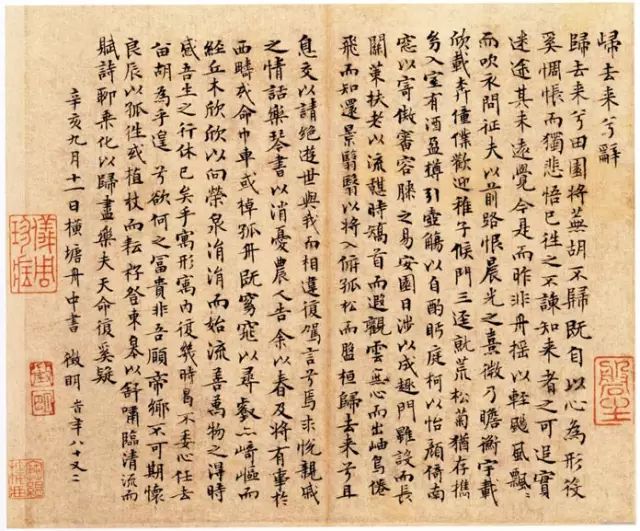 歸去来兮辭
歸去来兮田園將蕪胡不歸既自以心為形役
奚惆悵而獨悲悟已往之不諫知来者之可追實
迷途其未遠覺今是而昨非舟摇以輕颺風飄〻
而吹衣問征夫以前路恨晨光之熹微乃瞻衡宇載
欣載奔僮僕歡迎稚子候門三逕就荒松菊猶存攜
㓜入室有酒盈罇引壺觴以自酌眄庭柯以怡顏倚南
窓以寄傲審容膝之易安園日涉以成趣門雖設而長
關策扶老以流憩時矯首而遐觀雲無心而出岫鳥倦
飛而知還景翳翳以將入撫孤松而盤桓歸去来兮且
息交以請絕遊世與我而相違復駕言兮焉求悅親戚
之情話樂琴書以消憂農人告余以春及將有事於
西疇或命巾車或棹孤舟既窈窕以尋壑亦崎嶇而
經丘木欣欣以向榮泉涓涓而始流善萬物之得時
感吾生之行休已矣乎寓形寓內復幾時曷不委心任去
留胡為乎遑兮欲何之冨貴非吾願帝鄉不可期懷
良辰以孤往或植杖而耘耔登東皋以舒嘯臨清流而
賦詩聊乘化以歸盡樂夫天命復奚疑
辛亥九月十一日橫塘舟中書 徵明 時年八十又二
儀周珍藏
徵明